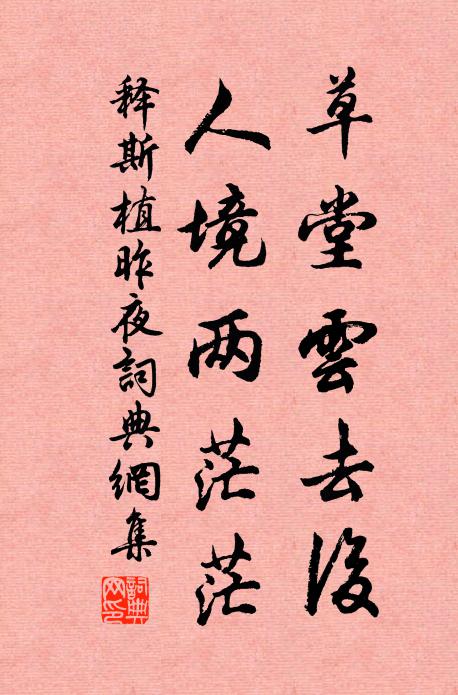 草堂雲去後
人境两茫茫
释斯植昨夜詞典網集
詞典網印